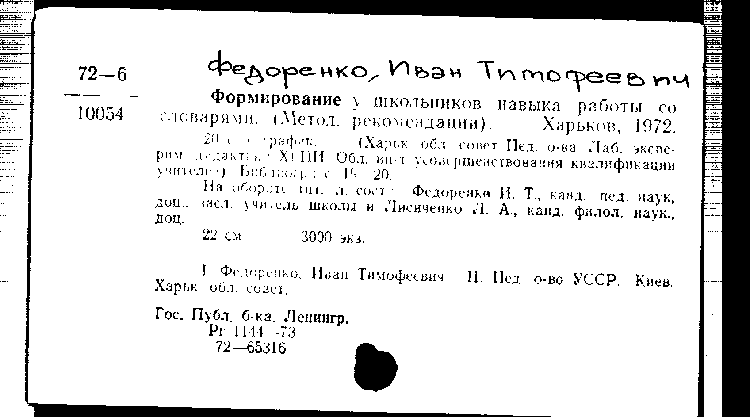 72—6
10054
Федоренко, Иван Тимофеевич
Формирование у школьников навыка работы со
словарями. (Метод. рекомендации). Харьков, 1972.
20 с. с график. (Харьк. обл. совет Пед. о-ва Лаб. экспе-
рим. дидактики ХГПИ Обл. ин-т усовершенствования квалификации
учителей) Библиогр.: с. 19 20.
На обороте тит. л. сост.: Федоренко И. Т., канд. пед. наук,
доц., засл. учитель школы и Лисиченко Л. А., канд. филол. наук.,
доц.
22 см 3000 экз.
I Федоренко, Иван Тимофеевич II. Пед. о-во УССР. Киев.
Харьк. обл. совет.
Гос. Публ. б-ка. Ленингр.
Pr 1144 -73
72—65316